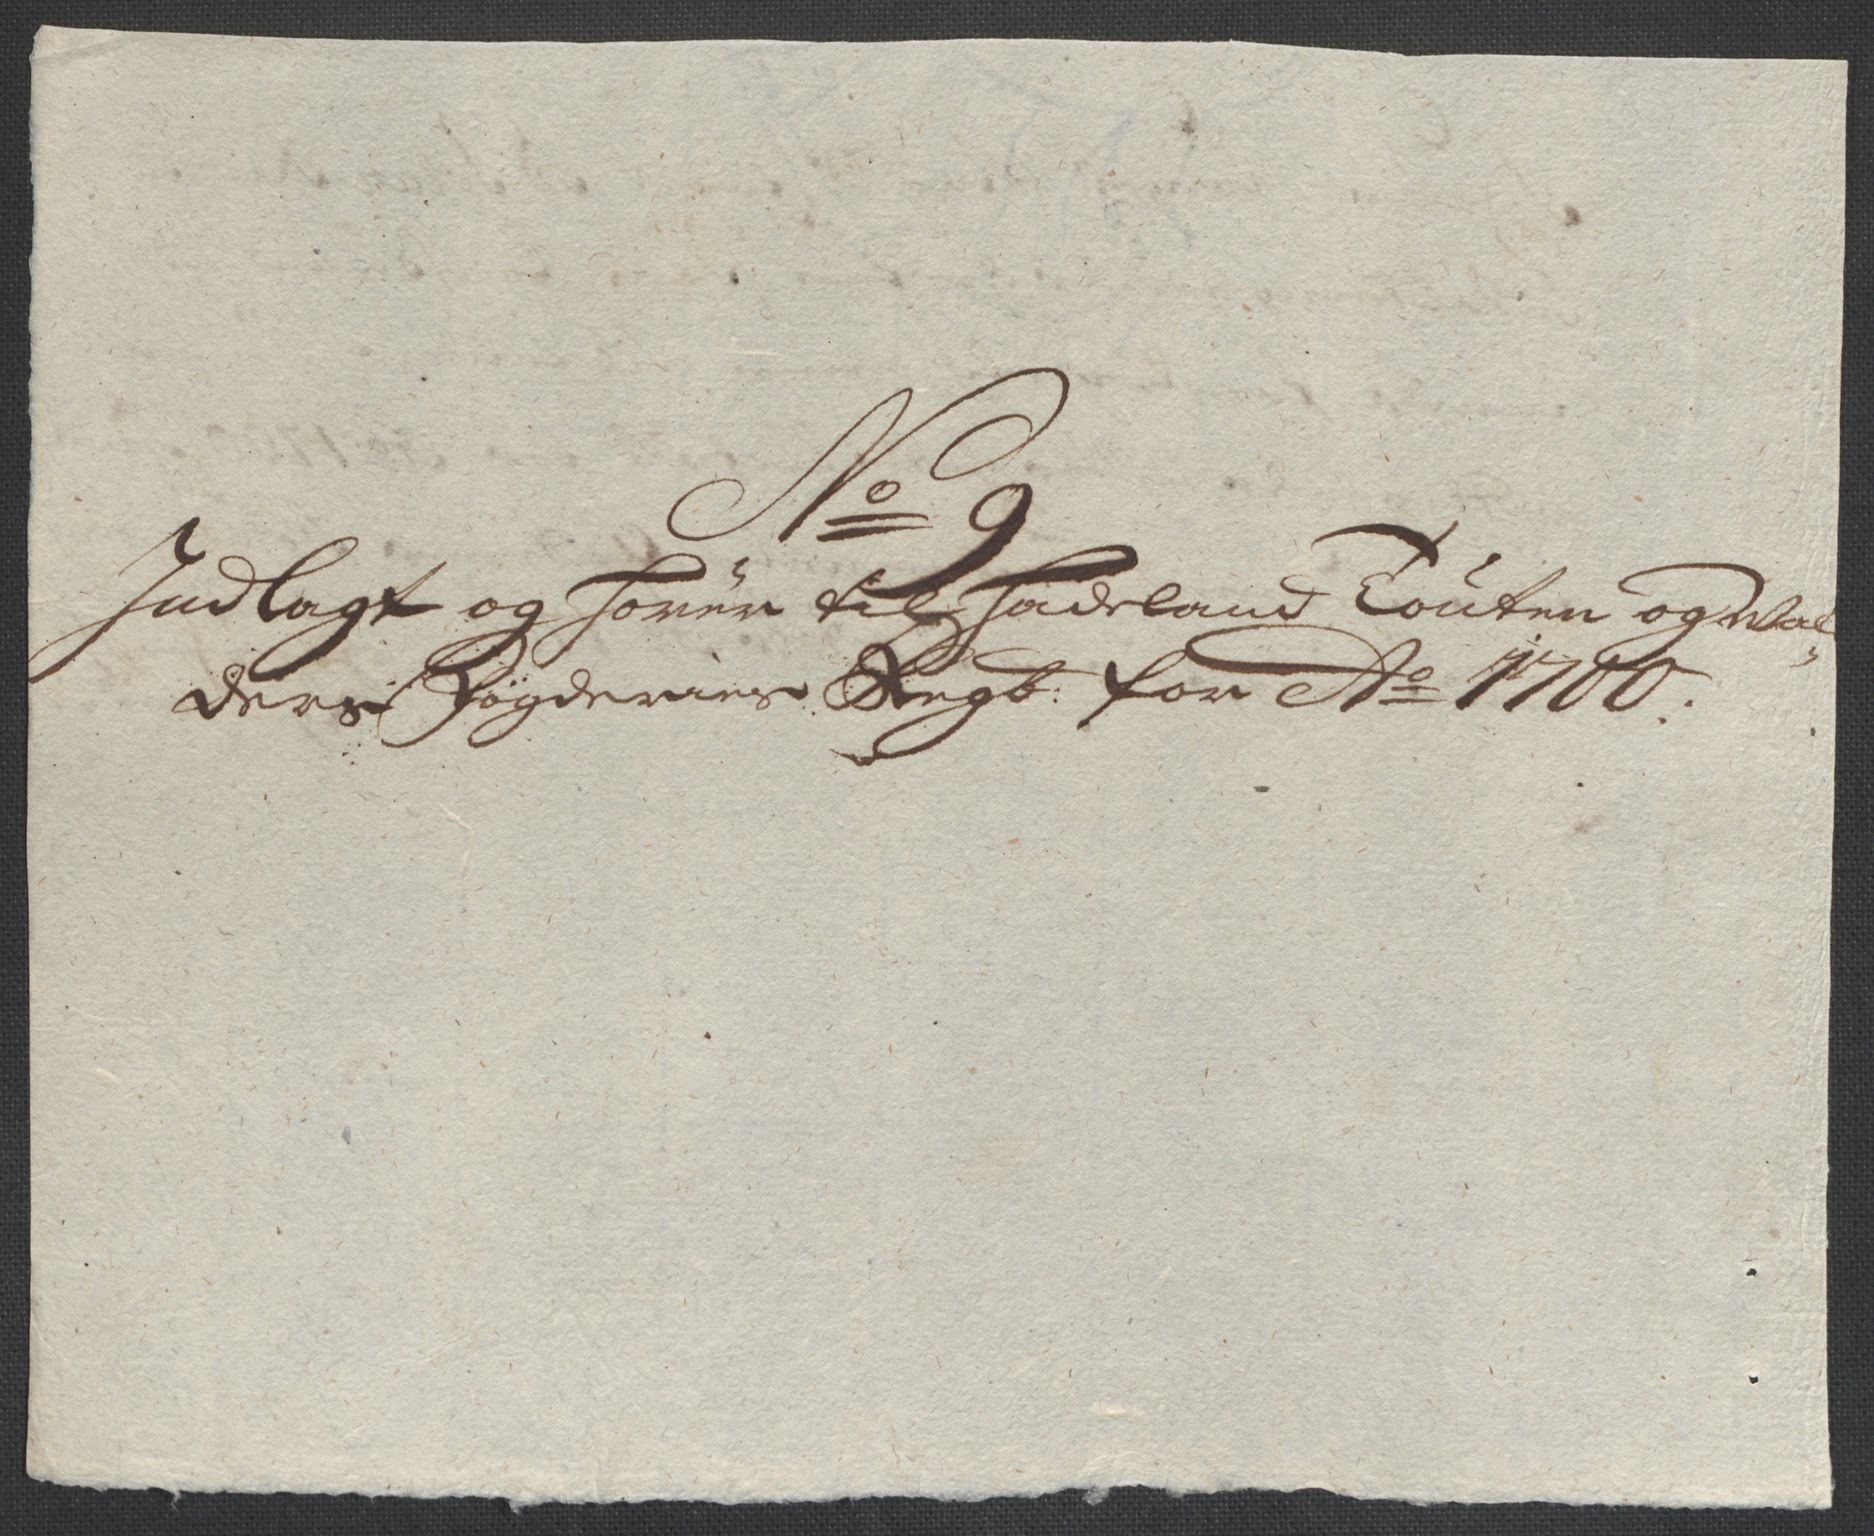 No 9
Indlagt og hörer til Hadeland Touten og Wal
ders Fogderies Regb: for Ao 1700.